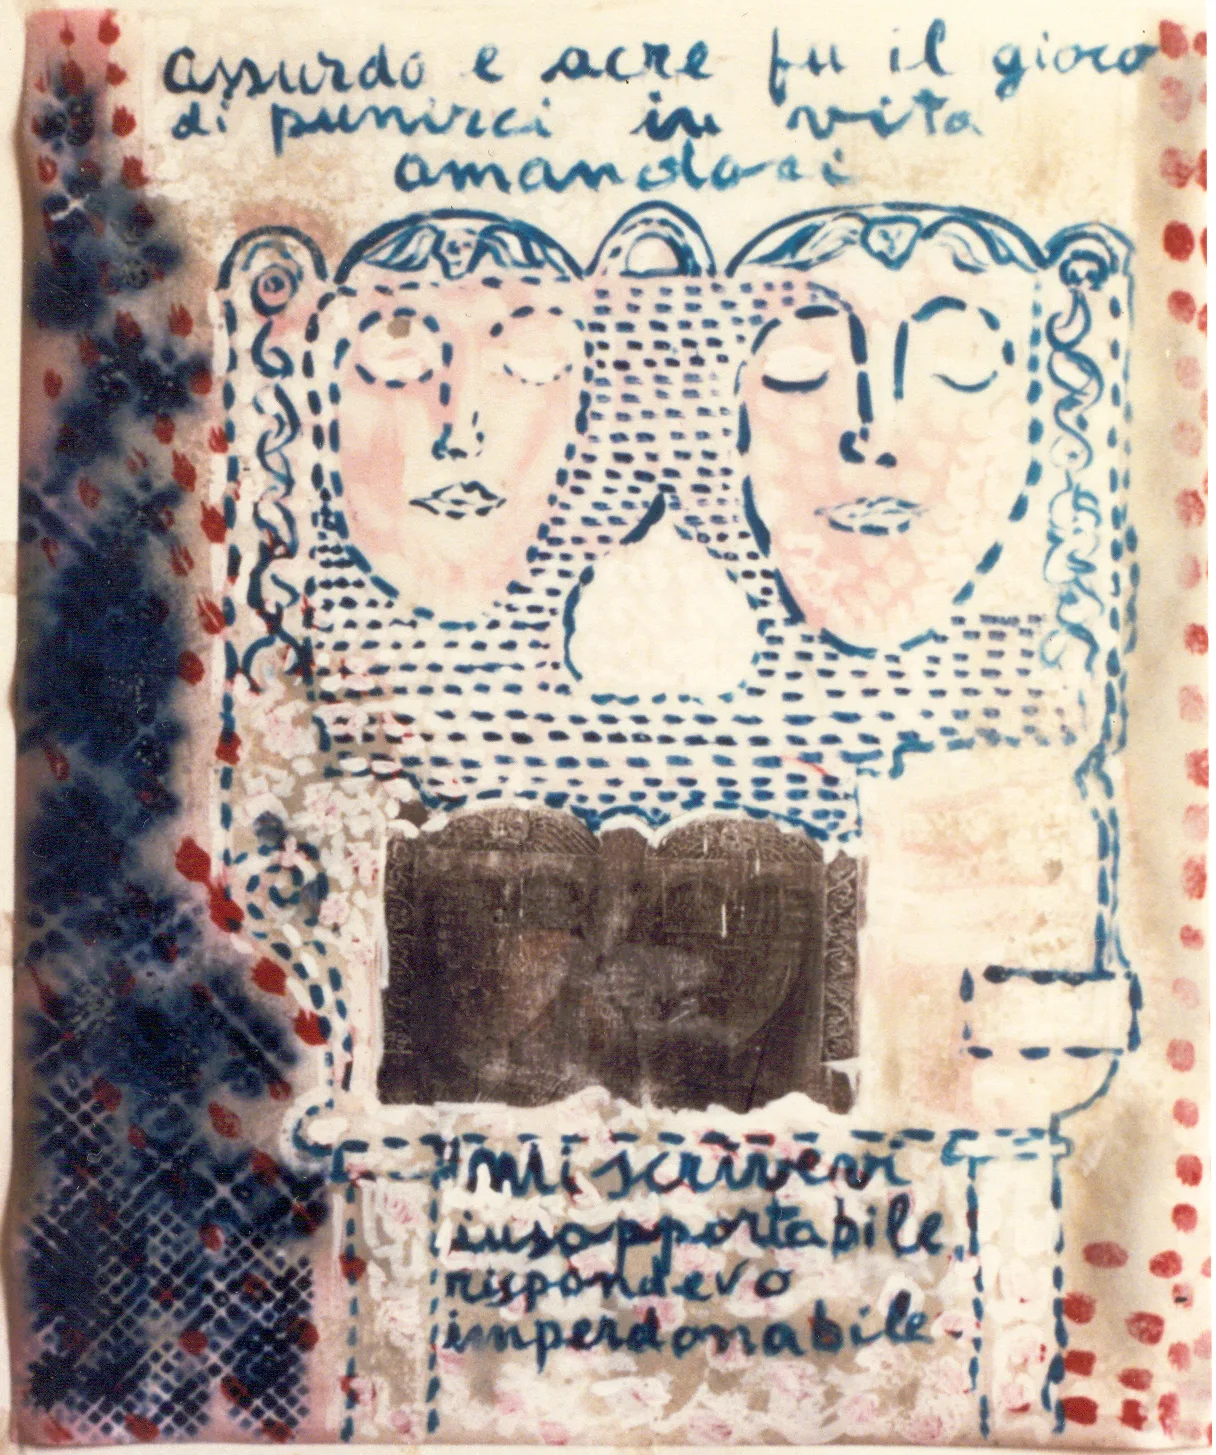 assurdo e acre fu il gioco
di punirci in vita
amandoci
mi scrivevi
insopportabile
rispondevo
imperdonabile